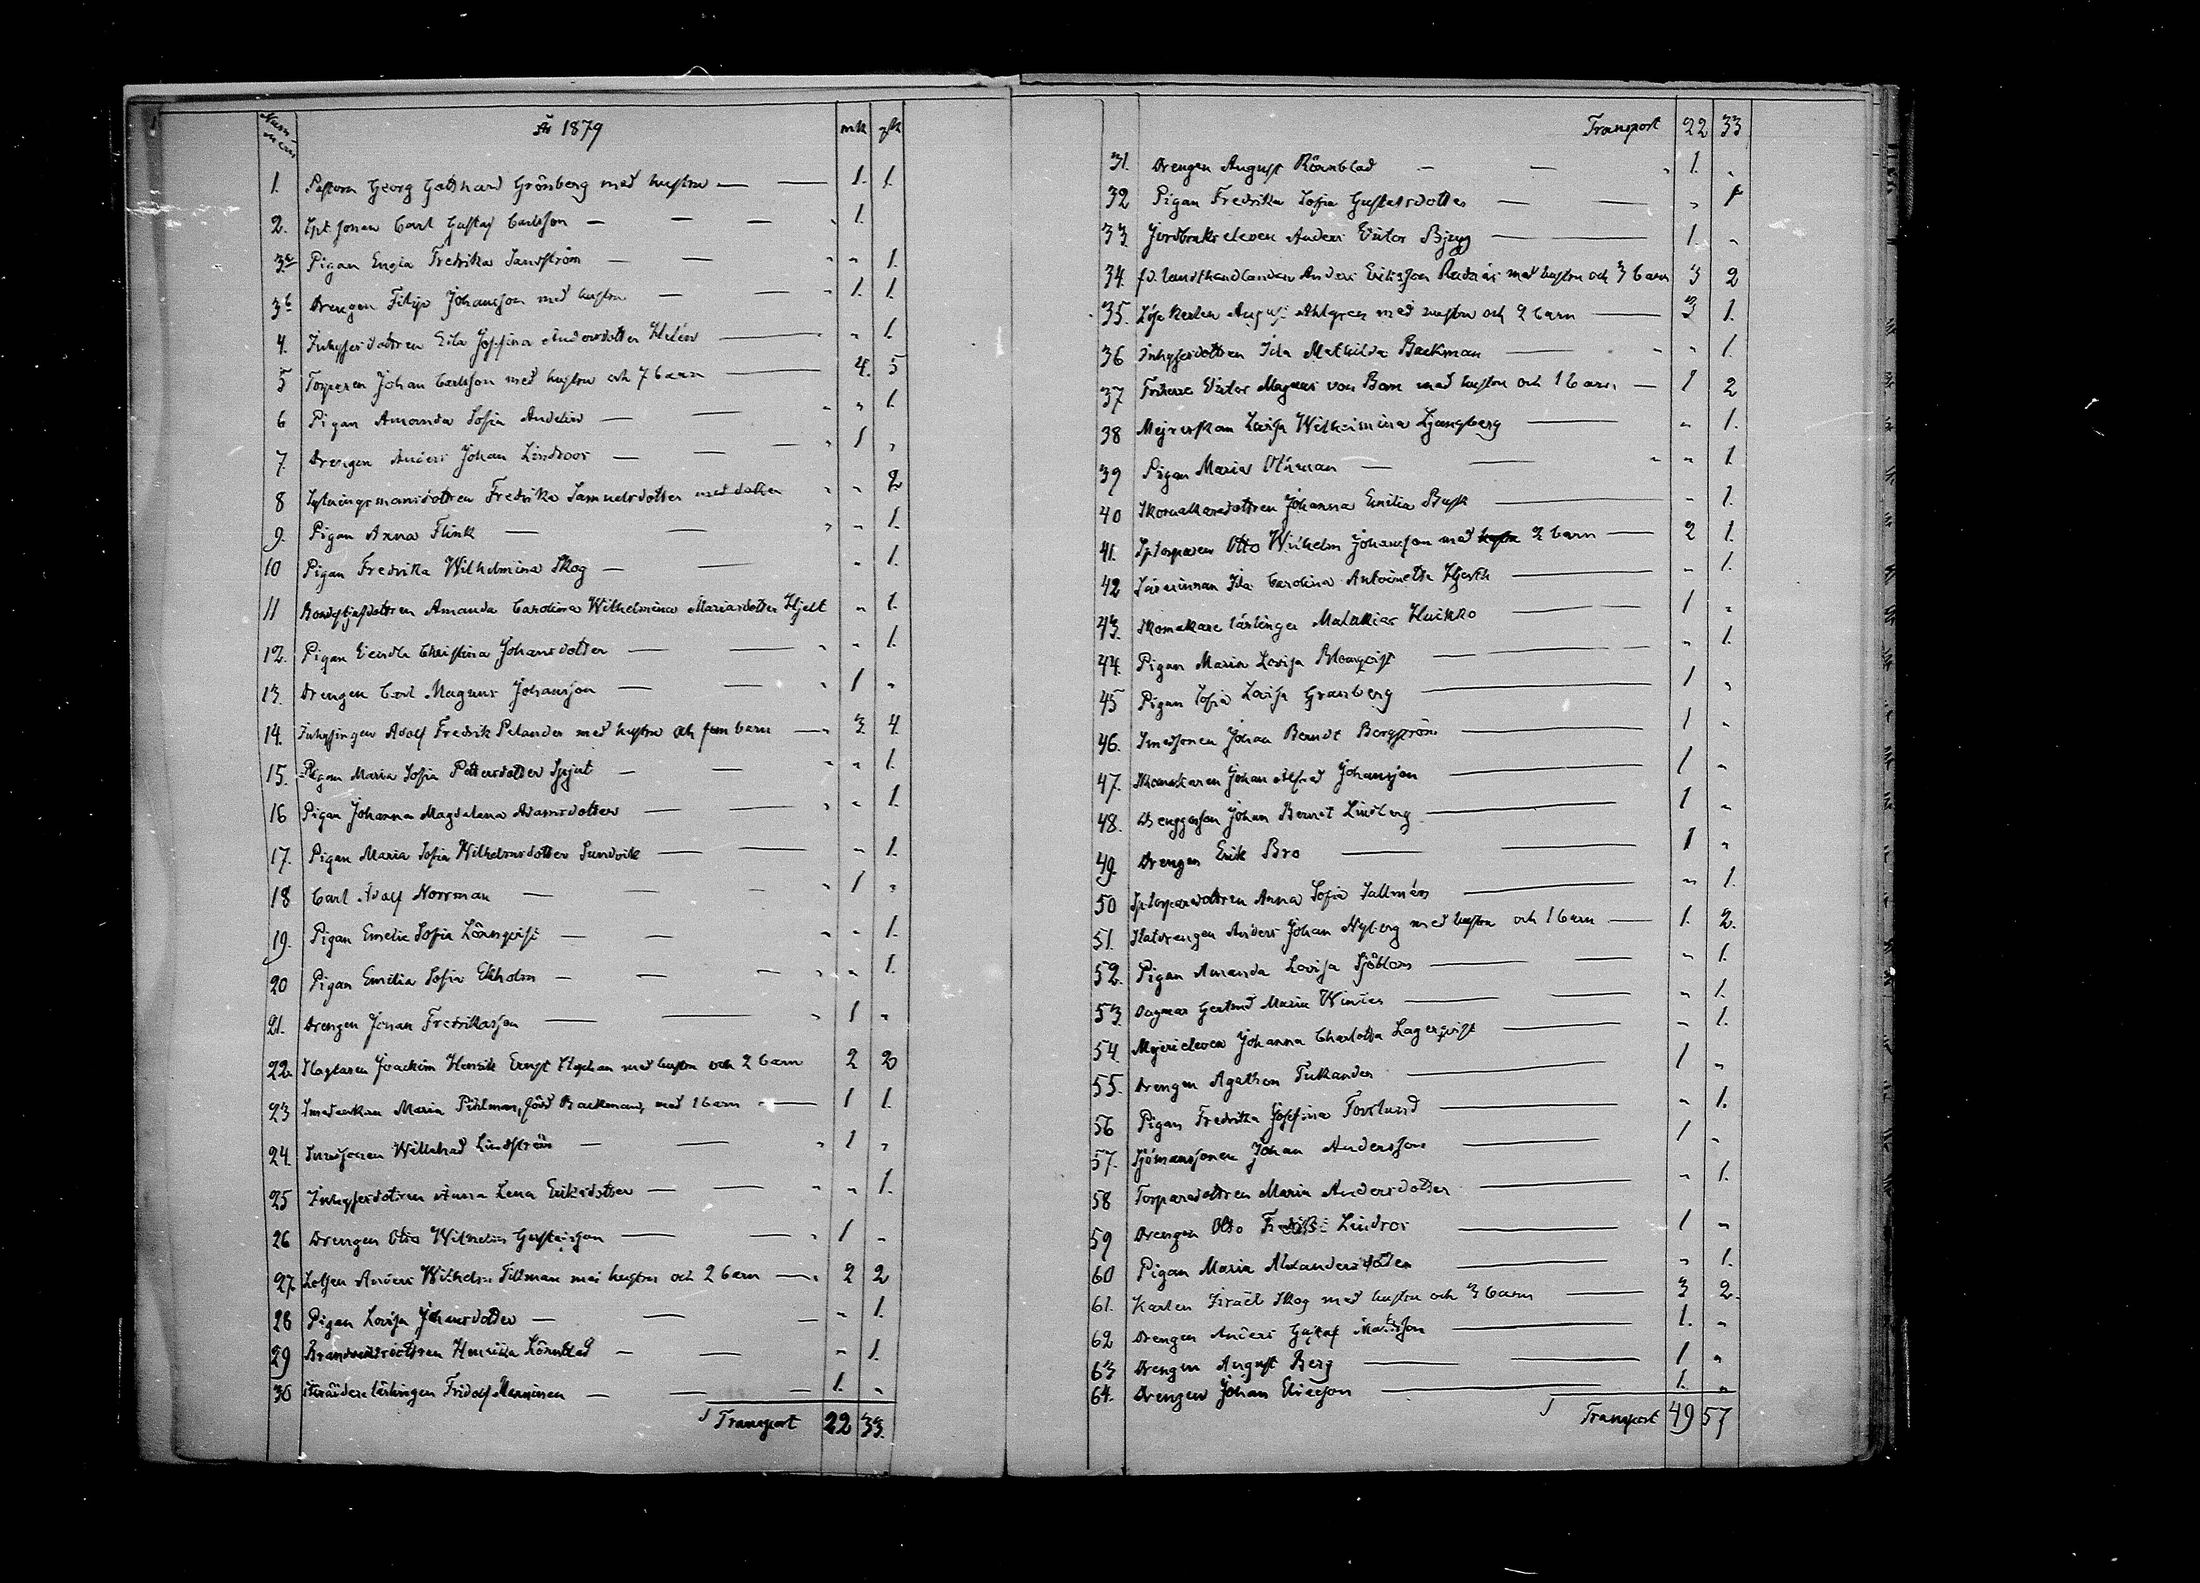 Num-
mern År 1879 mk qk
1. Pastorn Georg Gotthard Grönberg med hustru — — 1. 1.
2. Carl Gustaf Carlsson — — — " 1.
3a Pigan Engla Fredrika Sandström — — " " 1.
3b Drengen Filip Johansson med hustru — — " 1. 1.
4. Inhysesdottren Eila Josefina Andersdotter Helén — " 1.
5 Torparen Johan Carlsson med hustru och 7 barn — 4. 5
6 Pigan Amanda Sofia Andelin — — " " 1.
7. Drengen Anders Johan Lindroos — — — " 1 "
8 Fredrika Samuelsdotter med dotter " " 2
9. Pigan Anna Flink — — " " 1.
10 Pigan Fredrika Wilhelmina Skog — — " 1.
11 Amanda Carolina Wilhelmina Mariasdotter Hjelt " 1.
12. Pigan Christina Johansdotter — — " " 1.
13. Drengen Carl Magnus Johansson — — " 1 "
14. Inhysingen Adolf Fredrik Pelander med hustru och fem barn — 3. 4.
15. Pigan Maria Sofia Pettersdotter — " " 1.
16 Pigan Johanna Magdalena Adamsdotter — — " " 1.
17. Pigan Maria Sofia Wilhelmsdotter Sundvik — — " 1.
18 Carl Adolf Norrman — — — " 1 "
19. Pigan Emelie Sofia Lönnqvist — — " " 1.
20 Pigan Emilia Sofia Ekholm — — — " " 1.
21. Drengen Johan Fredriksson — — " 1 "
22. Joachim Henrik Ernst med hustru och 2 barn 2 2
23 Maria Pihlman, född Backman, med 1 barn — 1 1.
24. Lindström — — " 1 "
25 Inhysesdottren Anna Lena Eriksdotter — — " " 1.
26 Drengen Otto Wilhelm Gustafsson — — " 1 "
27. Lotsen Anders Wilhelm Tillman med hustru och 2 barn — " 2 2
28 Pigan Lovisa Johansdotter — — — " 1.
29 Henrika Lönnblad — — " 1.
30 Skräddare lärlingen Fridolf Manninen — — — 1. "
Transport 22 33.
Transport 22 33
31. Drengen August Rönnblad — — " 1. "
32 Pigan Fredrika Sofia Gustafsdotter — — " 1
33 Jordbrukseleven Anders Victor — 1. "
34. f.d. landthandlanden Anders Eriksson med hustru och 3 barn 3 2
35. Lösekarlen August Ahlgren med hustru och 2 barn — 3 1.
36 Inhysesdottren Ida Mathilda Backman — " " 1.
37 Victor Magnus von Born med hustru och 1 barn — 1 2
38 Mejerskan Lovisa Wilhelmina Ljungberg — " 1.
39 Pigan Maria Öhman — — " " 1.
40 Skomakaredottren Johanna Emilia Busk — " 1.
41. Otto Wilhelm Johansson med hustru 2 barn — 2 1.
42 Ida Carolina Antoinette — " 1.
43. Skomakare lärlingen Malakias Huikko — — 1 "
44. Pigan Maria Lovisa Blomqvist — — — — " 1.
45 Pigan Sofia Lovisa Granberg — 1 "
46. Smedsonen Johan Berndt Bergström — 1 "
47. Skomakaren Johan Alfred Johansson — 1 "
48. Drenggossen Johan Berndt Lindberg — 1 "
49. Drengen Erik Bro — — 1 "
50 Anna Sofia — " 1.
51. Statdrengen Anders Johan Nyberg med hustru och 1 barn — 1. 2.
52. Pigan Amanda Lovisa Sjöblom — — " 1.
53. Dagmar Gertrud Maria Winter — — " 1.
54. Mejerieleven Johanna Charlotta Lagerqvist — " 1.
55. Drengen Agathon Tukander — 1 "
56 Pigan Fredrika Josefina Forslund — " 1.
57. Sjömanssonen Johan Andersson — 1 "
58 Torparedottren Maria Andersdotter — " 1.
59 Drengen Otto Lindros — 1 "
60 Pigan Maria Alexandersdotter — " 1.
61. Karlen Israël Skog med hustru och 3 barn — 3 2.
62 Drengen Anders Gustaf Mattsson — 1. "
63 Drengen August Berg — — 1 "
64. Drengen Johan Ericsson — 1. "
Transport 49 57